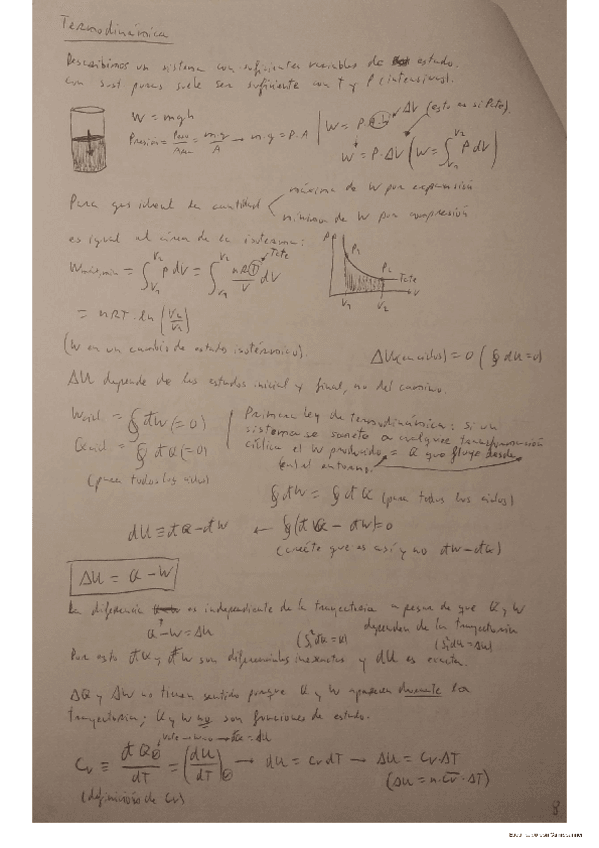 Termodinámica
Describimos un sistema con suficientes variables de estado.
Con sust puras suele ser suficiente con T y P (intensivas).
W = mgh
Presión = Peso/Área = m·g/A → m·g = P·A
W = P·A·h ΔV (esto es si P cte).
W = P·ΔV (W = ∫V1 V2 P dV)
Para gas ideal la cantidad máxima de W por expansión
mínima de W por compresión
es igual al área de la isoterma:
Wmáx,mín = ∫V1 V2 P dV = ∫V1 V2 nRT/V dV Tcte
P P1 P2 Tcte V1 V2 V
= nRT·ln(V2/V1)
(W en un cambio de estados isotérmico).
ΔU(en ciclos) = 0 (∮dU = 0)
ΔU depende de los estados inicial y final, no del camino.
Wcicl. = ∮đW (≠0)
Qcicl = ∮đQ (≠0)
(para todos los ciclos)
Primera ley de termodinámica: si un
sistema se somete a cualquier transformación
cíclica el W producido = Q que fluye desde
el entorno.
∮đW = ∮đQ (para todos los ciclos)
dU ≡ đQ - đW ← ∮(đQ - đW) = 0
(que es así y no đW - đQ)
ΔU = Q - W
La diferencia es independiente de la trayectoria a pesar de que Q y W
dependen de la trayectoria
Q - W = ΔU
Por esto đQ y đW son diferenciales inexactas y dU es exacta.
ΔQ y ΔW no tienen sentido porque Q y W aparecen durante la
trayectoria; Q y W no son funciones de estado.
Cv ≡ đQv/dT = (dU/dT)v → dU = Cv dT → ΔU = Cv·ΔT
(definición de Cv)
(ΔU = n·Cv·ΔT)
8